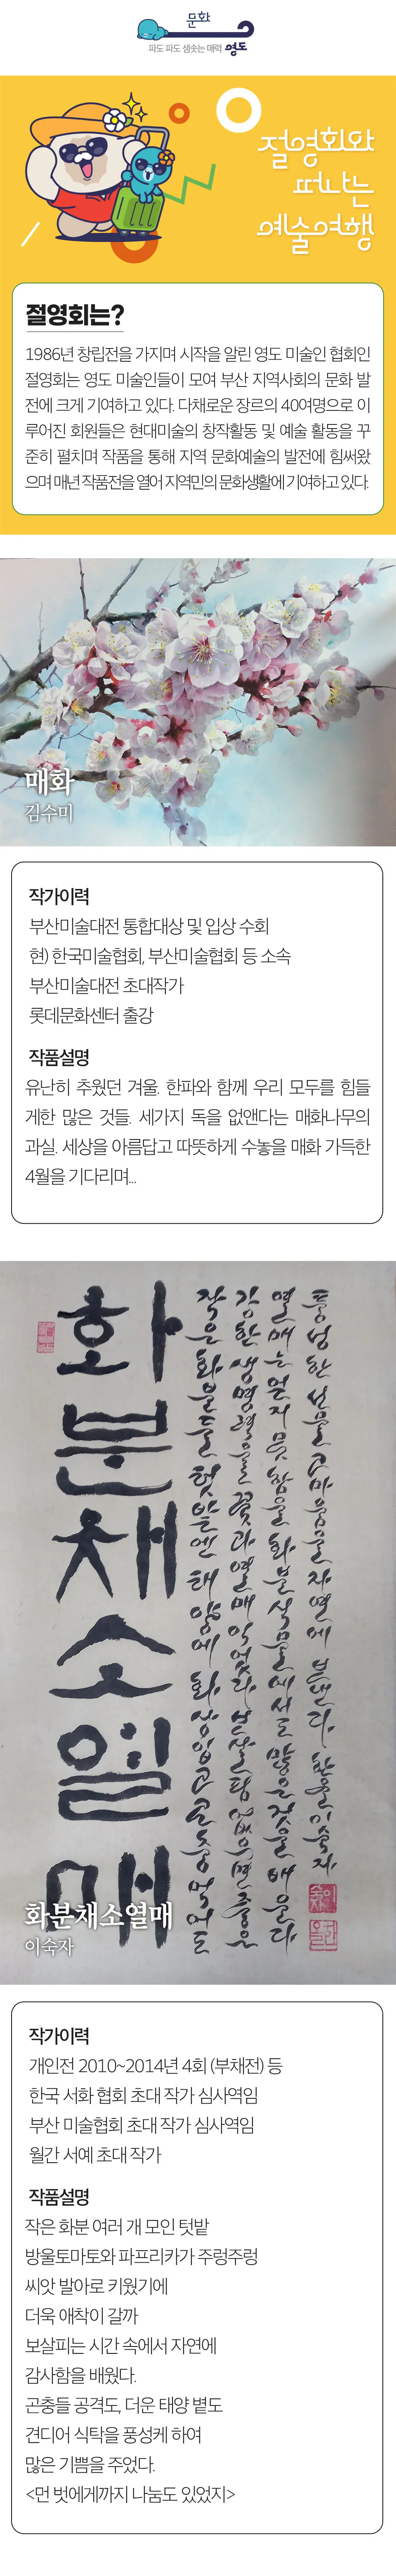 문화
파도 파도 샘솟는 매력 영도
절영회와
떠나는
예술여행
절영회는?
1986년 창립전을 가지며 시작을 알린 영도 미술인 협회인
절영회는 영도 미술인들이 모여 부산 지역사회의 문화 발
전에 크게 기여하고 있다. 다채로운 장르의 40여명으로 이
루어진 회원들은 현대미술의 창작활동 및 예술 활동을 꾸
준히 펼치며 작품을 통해 지역 문화예술의 발전에 힘써왔
으며 매년 작품전을 열어 지역민의 문화생활에 기여하고 있다.
매화
김수미
작가이력
부산미술대전 통합대상 및 입상 수회
현) 한국미술협회, 부산미술협회 등 소속
부산미술대전 초대작가
롯데문화센터 출강
작품설명
유난히 추웠던 겨울. 한파와 함께 우리 모두를 힘들
게한 많은 것들. 세가지 독을 없앤다는 매화나무의
과실. 세상을 아름답고 따뜻하게 수놓을 매화 가득한
4월을 기다리며...
화분채소열매
작은 화분들 텃밭엔 태양에 화상입고 곤충 먹어도
강한 생명력을 꽃과 열매 익었다 보살핌 없으면 좋은
열매는 얻지 못함을 화분식물에서도 많은 것을 배운다
풍성한 선물 고마움을 자연에 보낸다 한울 이숙자
화분채소열매
이숙자
작가이력
개인전 2010~2014년 4회 (부채전) 등
한국 서화 협회 초대 작가 심사역임
부산 미술협회 초대 작가 심사역임
월간 서예 초대 작가
작품설명
작은 화분 여러 개 모인 텃밭
방울토마토와 파프리카가 주렁주렁
씨앗 발아로 키웠기에
더욱 애착이 갈까
보살피는 시간 속에서 자연에
감사함을 배웠다.
곤충들 공격도, 더운 태양 볕도
견디어 식탁을 풍성케 하여
많은 기쁨을 주었다.
<먼 벗에게까지 나눔도 있었지>